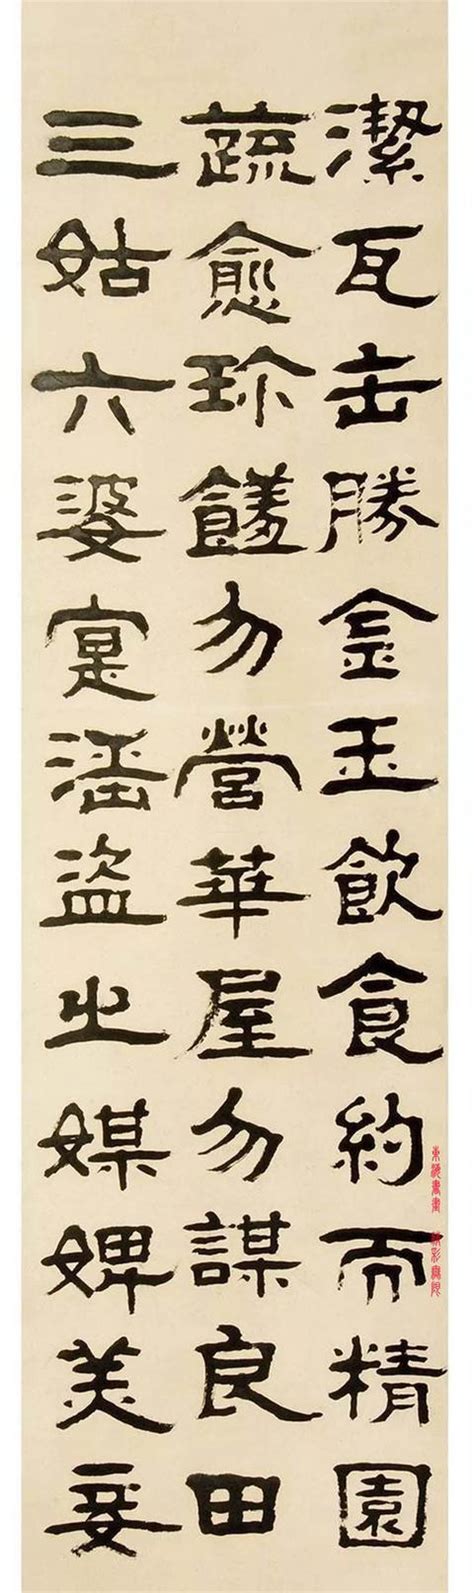 潔瓦缶勝金玉飲食約而精園
蔬愈珍饈勿營華屋勿謀良田
三姑六婆寔淫盜之媒婢美妾